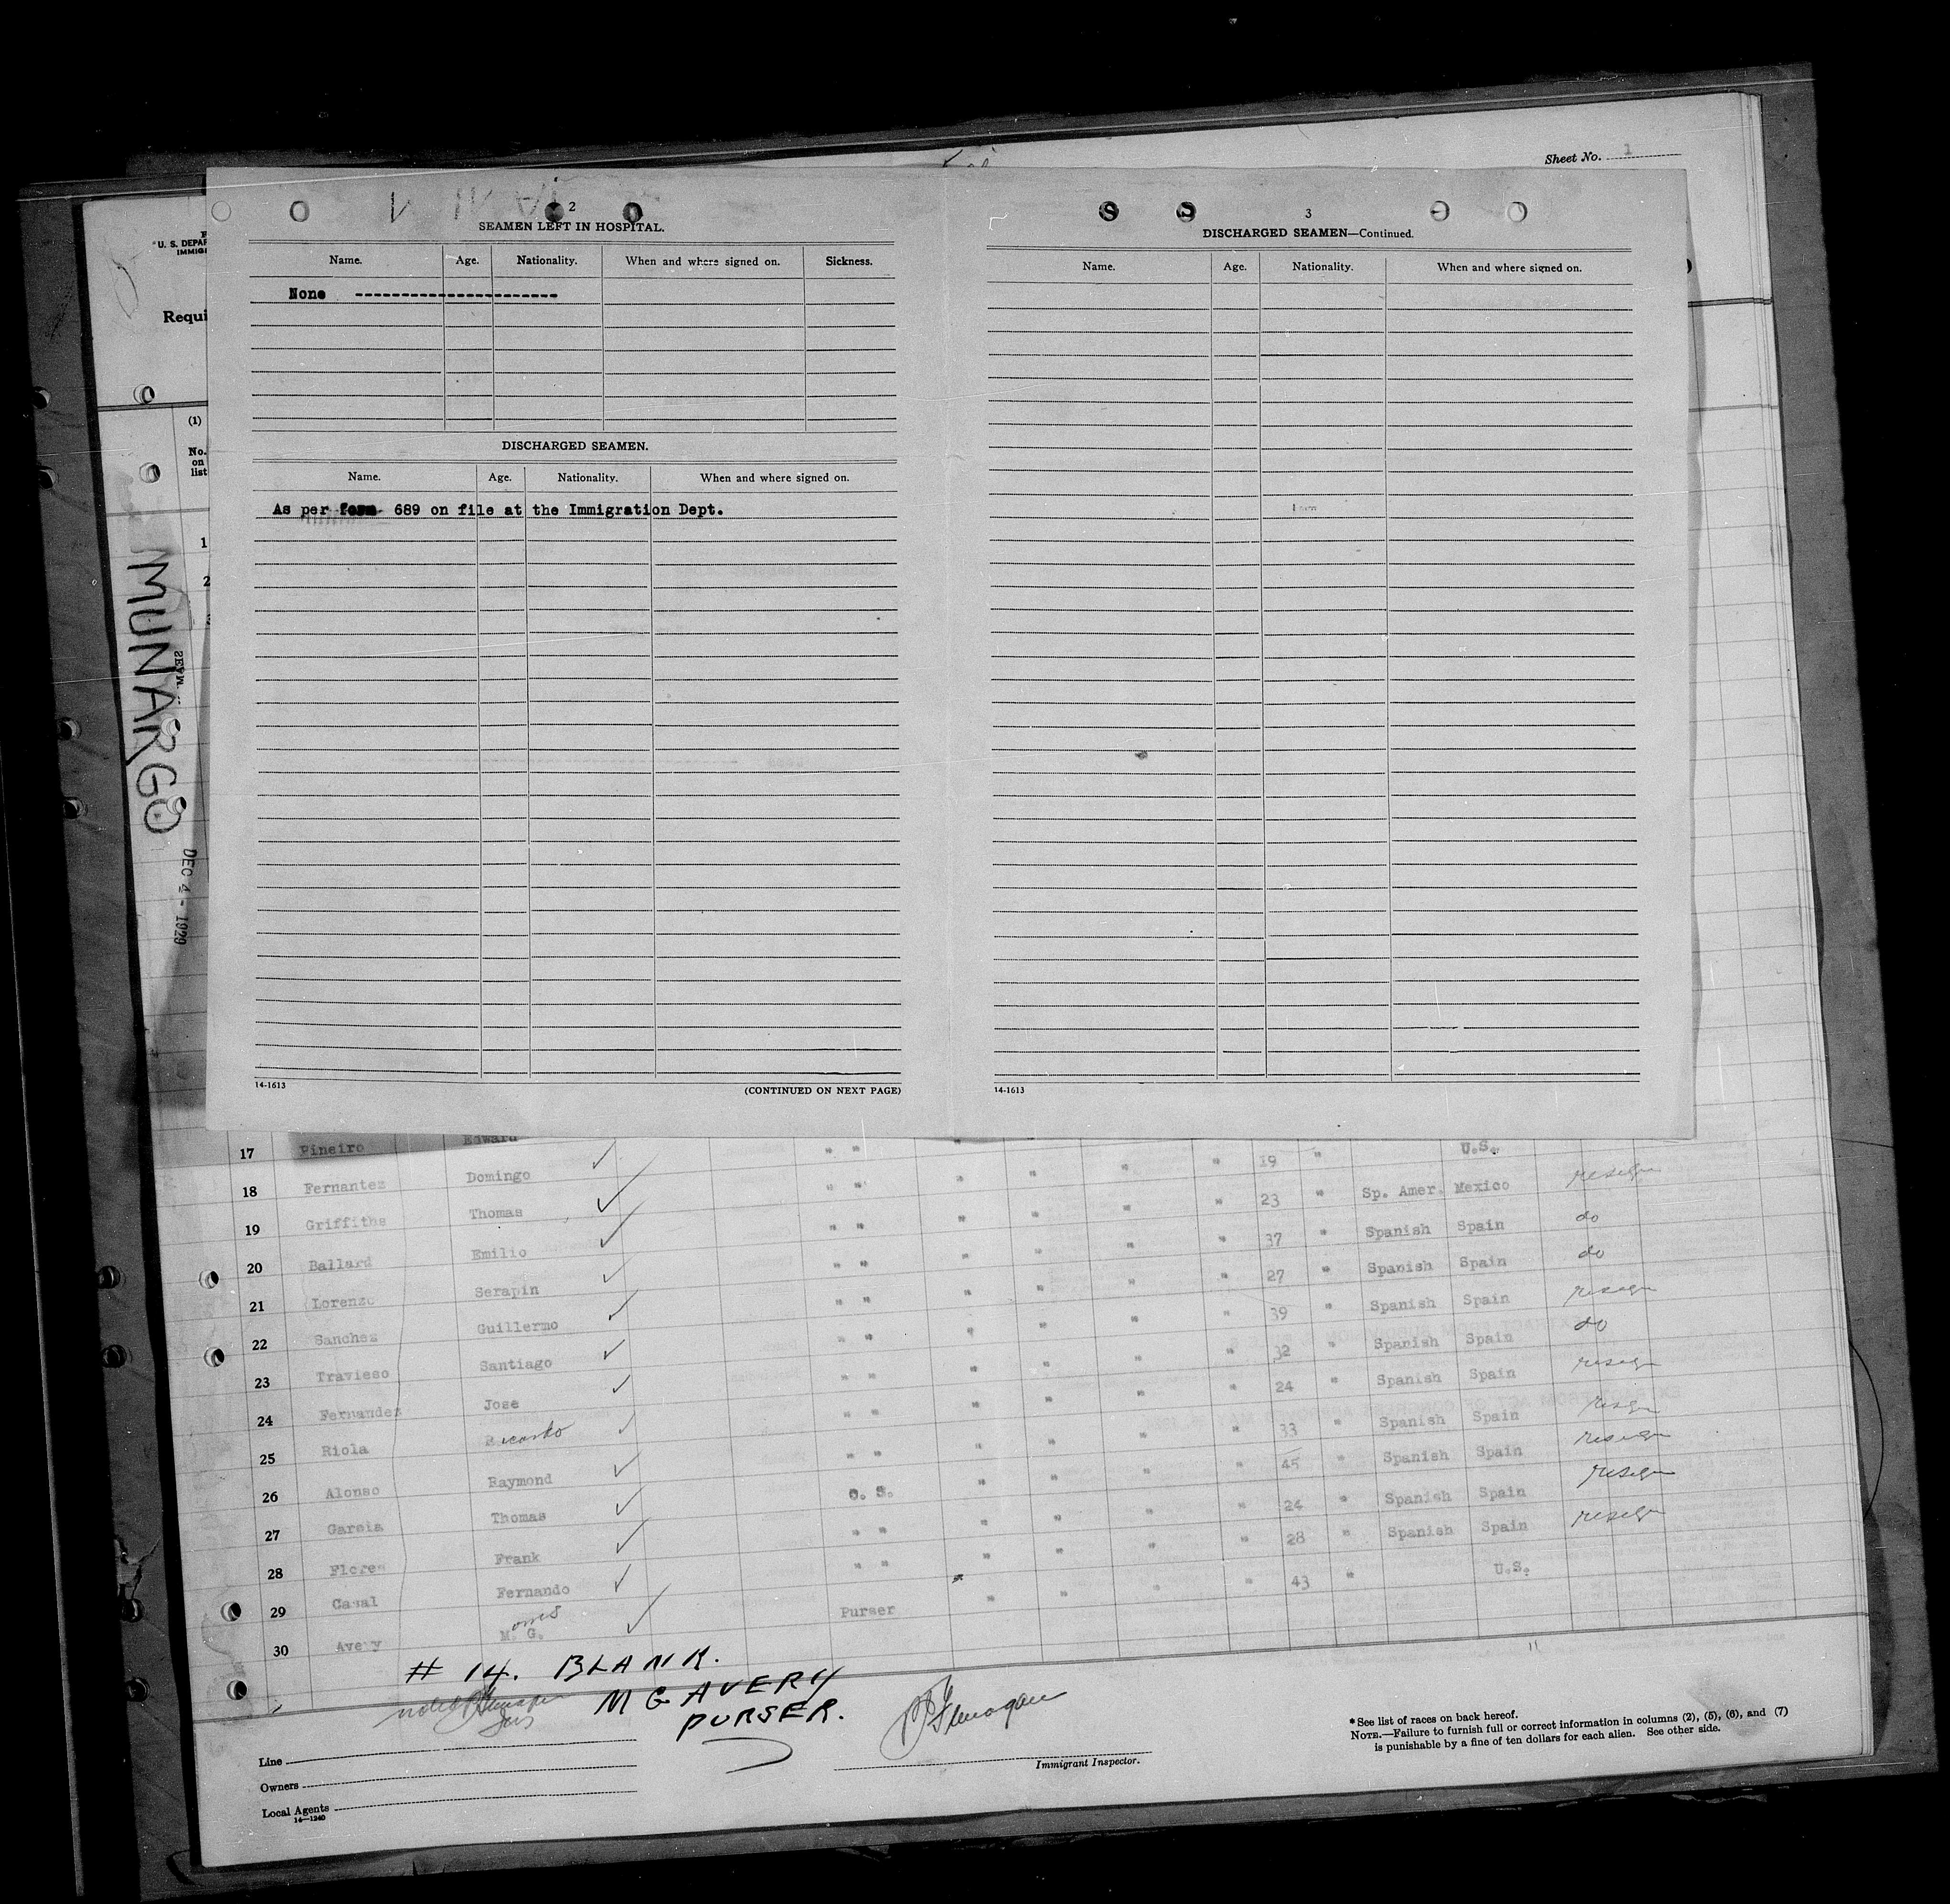 Sheet No. 1
U. S. DEPAR
IMMIG
Requi
(1)
No.
on
list
1
2
MUNARGO
DEC 4 - 1929
2
SEAMEN LEFT IN HOSPITAL.
Name. Age. Nationality. When and where signed on. Sickness.
None -----------------------
DISCHARGED SEAMEN.
Name. Age. Nationality. When and where signed on.
As per form 689 on file at the Immigration Dept.
14-1613 (CONTINUED ON NEXT PAGE)
3
DISCHARGED SEAMEN—Continued.
Name. Age. Nationality. When and where signed on.
14-1613
17 Pineiro Edward " " " " " " 19 " U.S.
18 Fernantez Domingo " " " " " " 23 " Sp. Amer. Mexico
19 Griffiths Thomas " " " " " " 37 " Spanish Spain do
20 Ballard Emilio " " " " " " 27 " Spanish Spain do
21 Lorenzo Serapin " " " " " " 39 " Spanish Spain
22 Sanchez Guillermo " " " " " " 32 " Spanish Spain do
23 Travieso Santiago " " " " " " 24 " Spanish Spain
24 Fernandez Jose " " " " " " 33 " Spanish Spain
25 Riola Ricardo " " " " " " 45 " Spanish Spain
26 Alonso Raymond O. S. " " " " 24 " Spanish Spain
27 Garcia Thomas " " " " " " 28 " Spanish Spain
28 Flores Frank " " " " " " 43 " U.S.
29 Casal Fernando
30 Avery M. G. Purser
# 14. BLANK.
M G AVERY
PURSER.
Line
Owners
Local Agents
14—1240
Immigrant Inspector.
*See list of races on back hereof.
NOTE.—Failure to furnish full or correct information in columns (2), (5), (6), and (7)
is punishable by a fine of ten dollars for each alien. See other side.